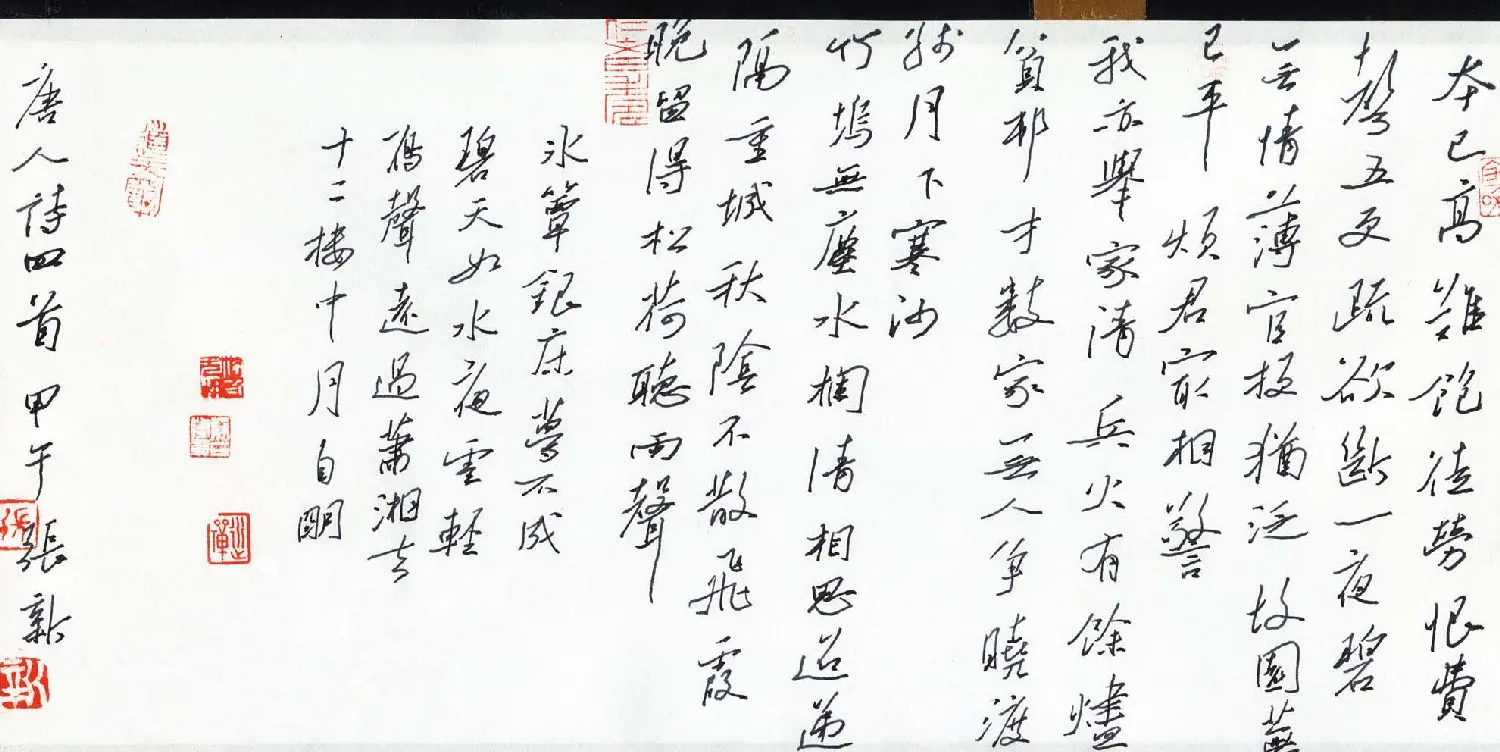 本已高難飽徒勞恨費
聲五更疏欲斷一夜碧
无情薄官梗猶泛故園蕪
已平 煩君最相警
我亦舉家清 兵火有餘燼
貧村才數家无人爭曉渡
殘月下寒沙
竹塢無塵水檻清相思迢遞
隔重城秋陰不散飛霞
晚留得松荷聽雨聲
冰簟銀床夢不成
碧天如水夜雲輕
雁聲遠過蕭湘去
十二樓中月自明
唐人詩四首 甲午 張新
張
新